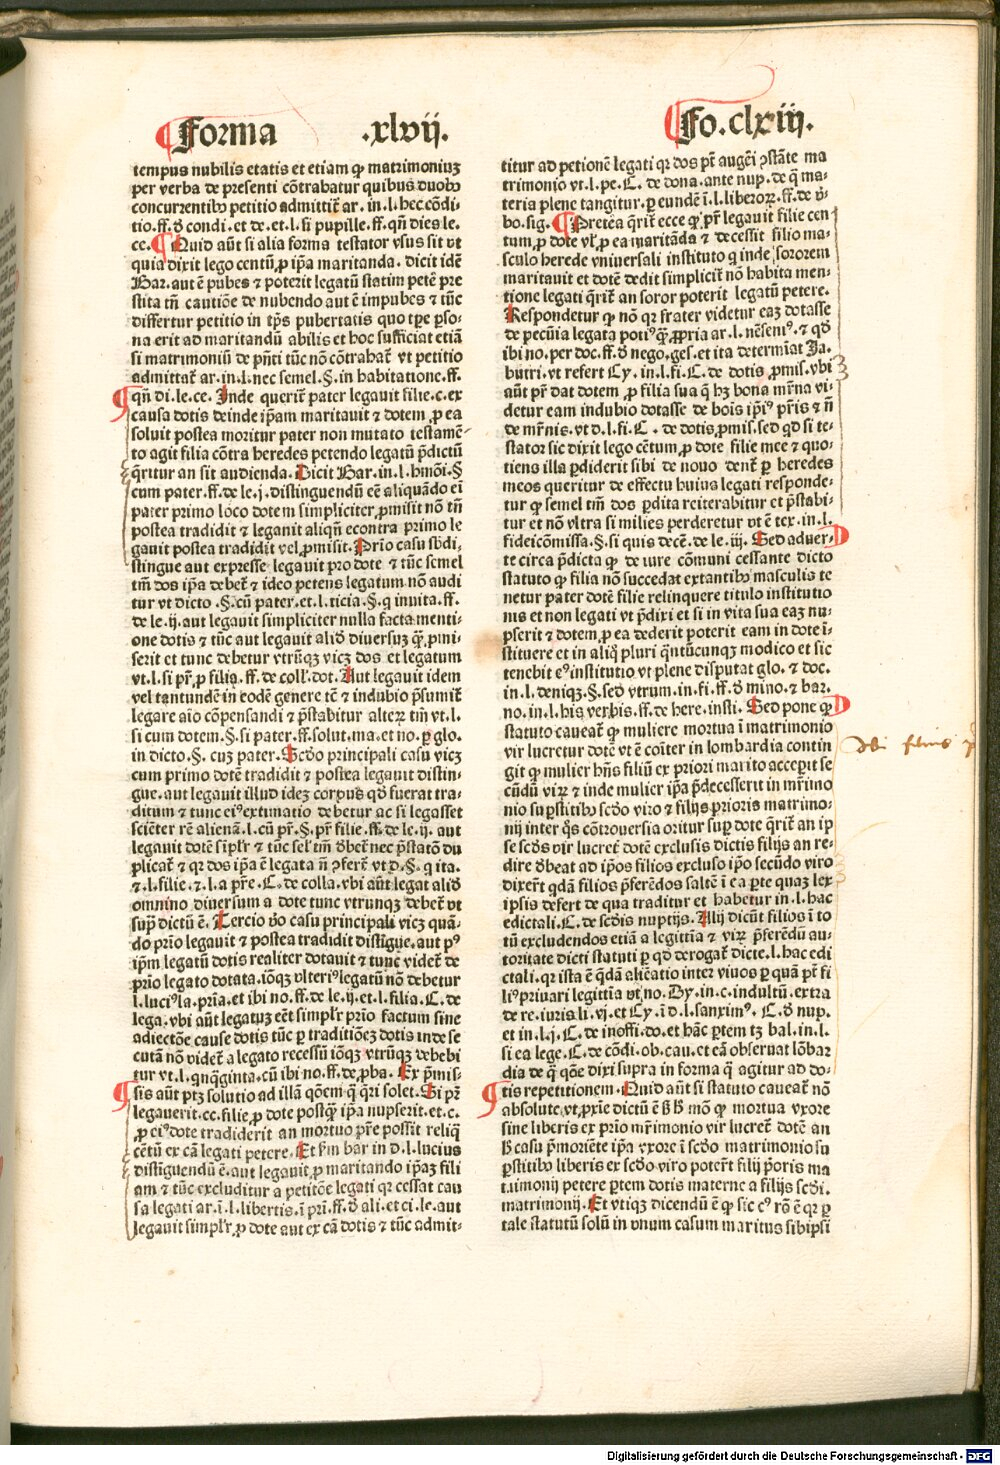 Forma .xlvij. Fo.clxiij.
tempus nubilis etatis et etiam ꝙ matrimoniuꝫ
per verba de presenti cōtrahatur quibus duobꝰ
concurrentibꝰ petitio admittit̃ ar.in.l.hec cōdi
tio.ff.ð condi.et de.et.l.si pupille.ff.qñ dies le.
ce. ¶ Quid aũt si alia forma testator vsus sit vt
quia dixit lego centũ ꝓ ip̃a maritanda. dicit idē
Bar.aut ē pubes ⁊ poterit legatũ statim petē pre
stita tñ cautiōe de nubendo aut ē impubes ⁊ tũc
differtur petitio in tp̃s pubertatis quo tꝑe ꝑso-
na erit ad maritandũ abilis et hoc sufficiat etiā
si matrimoniũ de pñti tũc nō cōtrahat̃ vt petitio
admittat̃ ar.in.l.nec semel.§.in habitatione.ff.
¶ qñ di.le.ce. Inde querit̃ pater legauit filie.c.ex
causa dotis deinde ip̃am maritauit ⁊ dotem ꝓ ea
soluit postea moritur pater non mutato testamē-
to agit filia cōtra heredes petendo legatũ p̃dictũ
q̃ritur an sit audienda. Dicit Bar.in.l.hmōi.§
cum pater.ff.de le.j.distinguendũ eē aliquādo eī
pater primo loco dotem simpliciter ꝓmisit nō tñ
postea tradidit ⁊ leganit aliqñ econtra primo le
gauit postea tradidit vel ꝓmisit. Prīo casu sb̄di-
stingue aut expresse legauit pro dote ⁊ tũc semel
tm̄ dos ip̃a debet̃ ⁊ ideo petens legatum nō audi
tur vt dicto .§.cũ pater.et.l.ticia.§.q inuita.ff.
de le.ij.aut legauit simpliciter nulla facta menti-
one dotis ⁊ tũc aut legauit aliđ diuersuꝫ q̃ꝫ ꝓmi-
serit et tunc debetur vtrũqꝫ vicꝫ dos et legatum
vt.l.si pr̃ ꝓ filia.ff.de coll.dot. Aut legauit idem
vel tantundē in eodē genere tc̄ ⁊ indubio p̃sumit̃
legare aīo cōpensandi ⁊ p̃stabitur alteꝝ tm̄ vt.l.
si cum dotem.§.si pater.ff.solut.ma.et no.ꝑ glo.
in dicto.§.cuꝫ pater. Scđo principali casu vicꝫ
cum primo dotē tradidit ⁊ postea legauit distin-
gue.aut legauit illud ideꝫ corpus qđ fuerat tra-
ditum ⁊ tunc eiꝰ extimatio debetur ac si legasset
sciēter rē alienā.l.cũ pr̃.§.pr̃ filie.ff.de le.ij. aut
legauit dotē simpl̃r ⁊ tũc sel̃ tm̄ ðbet̃ nec p̃statō du
plicat̃ ⁊ qꝛ dos ip̃a ē legata ñ ꝓferē vt.đ.§.q ita.
⁊.l.filie.⁊.l.a pr̃e.C.de colla.vbi aũt legat aliđ
omnino diuersum a dote tunc vtrunqꝫ debet̃ vt
supꝑ dictũ ē. Tercio ꝟo casu principali vicꝫ quā-
do prīo legauit ⁊ postea tradidit distīgue.aut pꝰ
ip̃m legatũ dotis realiter dotauit ⁊ tunc videt̃ de
prīo legato dotata.iōqꝫ vlteriꝰ legatũ nō debetur
l.luciꝰ la.prīa.et ibi no.ff.de le.ij.et.l.filia.C.de
lega.vbi aũt legatuꝫ eēt simpl̃r prīo factum sine
adiectōe cause dotis tũc ꝑ traditiōeꝫ dotis inde se
cutā nō videt̃ a legato recessũ iōqꝫ vtrũqꝫ debebi
tur vt.l.qnq̃ginta.cũ ibi no.ff.de ꝓba. Ex p̃mis-
¶ sis aũt ptꝫ solutio ad illā qōem q̃ q̃ri solet. Si pr̃
legauerit.cc.filie ꝓ dote postq̃ꝫ ip̃a nupserit.et.c.
ꝓ eiꝰ dote tradiderit an mortuo pr̃e possit reliq̃
cētũ ex cā legati petere. Et ẜm bar in đ.l.lucius
distīguendũ ē.aut legauit ꝓ maritando ip̃aꝫ fili
am ⁊ tũc excluditur a petitōe legati qꝛ cessat cau
sa legati ar.ī.l.libertis.ī prī.ff.ð ali.et ci.le.aut
legauit simpl̃r ꝓ dote aut ex cā dotis ⁊ tũc admit-
titur ad petionē legati qꝛ dos pt̃ augēi ɔstāte ma
trimonio vt.l.pe.C. de dona.ante nup.de q̃ ma-
teria plene tangitur ꝑ eundē ī.l.liberoꝝ.ff.de ꝟ-
bo.sig. ¶ Pretēa q̃rit̃ ecce ꝙ pr̃ legauit filie cen
tum ꝓ dote vl̃ ꝓ ea maritāda ⁊ decessit filio ma-
sculo herede vniuersali instituto q inde sororem
maritauit et dotē dedit simplicit̃ nō habita men
tione legati q̃rit̃ an soror poterit legatũ petere.
Respondetur ꝙ nō qꝛ frater videtur eaꝫ dotasse
de pecũia legata potiꝰ q̃ꝫ ꝓpria ar.l.nēseniꝰ.⁊ qđ
ibi no.per doc.ff.ð nego.ges.et ita determīat Ja.
butri.vt refert Cy.in.l.fi.C.de dotis ꝓmis.vbi
aũt pr̃ dat dotem ꝓ filia sua q̃ hꝫ bona mr̃na vi-
detur eam indubio dotasse de bōis ip̃iꝰ pr̃is ⁊ ñ
de mr̃nis.vt đ.l.fi.C . de dotis ꝓmis.sed qđ si te-
stator sic dixit lego cētum ꝓ dote filie mee ⁊ quo-
tiens illa ꝑdiderit sibi de nouo dent̃ ꝑ heredes
meos queritur de effectu huius legati responde-
tur ꝙ semel tm̄ dos ꝑdita reiterabitur et p̃stabi-
tur et nō vltra si milies perderetur vt ē tex.in.l.
fideicōmissa.§.si quis decē.de le.iij. Sed aduer-
te circa p̃dicta ꝙ de iure cōmuni cessante dicto
statuto ꝙ filia nō succedat extantibꝰ masculis te
netur pater dotē filie relinquere titulo institutio
nis et non legati vt p̃dixi et si in vita sua eaꝫ nu-
pserit ⁊ dotem ꝓ ea dederit poterit eam in dote ī-
stituere et in aliq̃ pluri q̃ntũcunqꝫ modico et sic
tenebit eꝰ institutio vt plene disputat glo. ⁊ doc.
in.l.deniqꝫ.§.sed vtrum.in.fi.ff.ð mino.⁊ bar.
no.in.l.his verbis.ff.de here.insti. Sed pone ꝙ
statuto caueat̃ ꝙ muliere mortua ī matrimonio
vir lucretur dotē vt ē coīter in lombardia contin
git ꝙ mulier hñs filiũ ex priori marito accepit se
cũdũ viꝝ ⁊ inde mulier ip̃a p̃decesserit in mr̃imo
nio suꝑstitibꝰ scđo viro ⁊ filijs prioris matrimo-
nij inter q̃s cōtrouersia oritur suꝑ dote q̃rit̃ an ip
se scđs vir lucret̃ dotē exclusis dictis filijs an re-
dire ðbeat ad ip̃os filios excluso ip̃o secũdo viro
dixer̃t qđā filios p̃ferēdos saltē ī ea ꝑte quaꝫ lex
ipsis defert de qua traditur et habetur in.l.hac
edictali.C.de scđis nuptijs. Alij dicũt filios ī to
tũ excludendos etiā a legittīa ⁊ viꝝ p̃ferēdũ au-
toritate dicti statuti ꝑ qđ derogat̃ dicte.l.hac edi
ctali.qꝛ ista ē q̃dā aliēatio inter viuos ꝑ quā pr̃ fi
liꝰ priuari legittīa vt no. Dy.in.c.indultũ.extra
de re.iuris li.vj.et Cy.ī đ.l.sanximꝰ. C. ð nup.
et in.l.j.C.de inoffi.do.et hāc ꝑtem tꝫ bal.in.l.
si ea lege.C.de cōdi.ob.cau.et eā obseruat lōbar
dia de q̃ qōe dixi supra in forma q̃ agitur ad do-
¶ tis repetitionem. Quid aũt si statuto caueat̃ nō
absolute vt ꝓxīe dictũ ē ß hͦ mō ꝙ mortua vxore
sine liberis ex prīo mr̃imonio vir lucret̃ dotē an
hͦ casu p̃moriēte ip̃a vxore ī scđo matrimonio su
ꝑstitibꝰ liberis ex scđo viro poter̃t filij p̃oris ma
trimonij petere ꝑtem dotis materne a filijs scđi.
matrimonij. Et vtiqꝫ dicendũ ē ꝙ sic cꝰ rō ē qꝛ ꝑ
tale statutũ solũ in vnum casum maritus sibiipsi
Digitalisierung gefördert durch die Deutsche Forschungsgemeinschaft - DFG